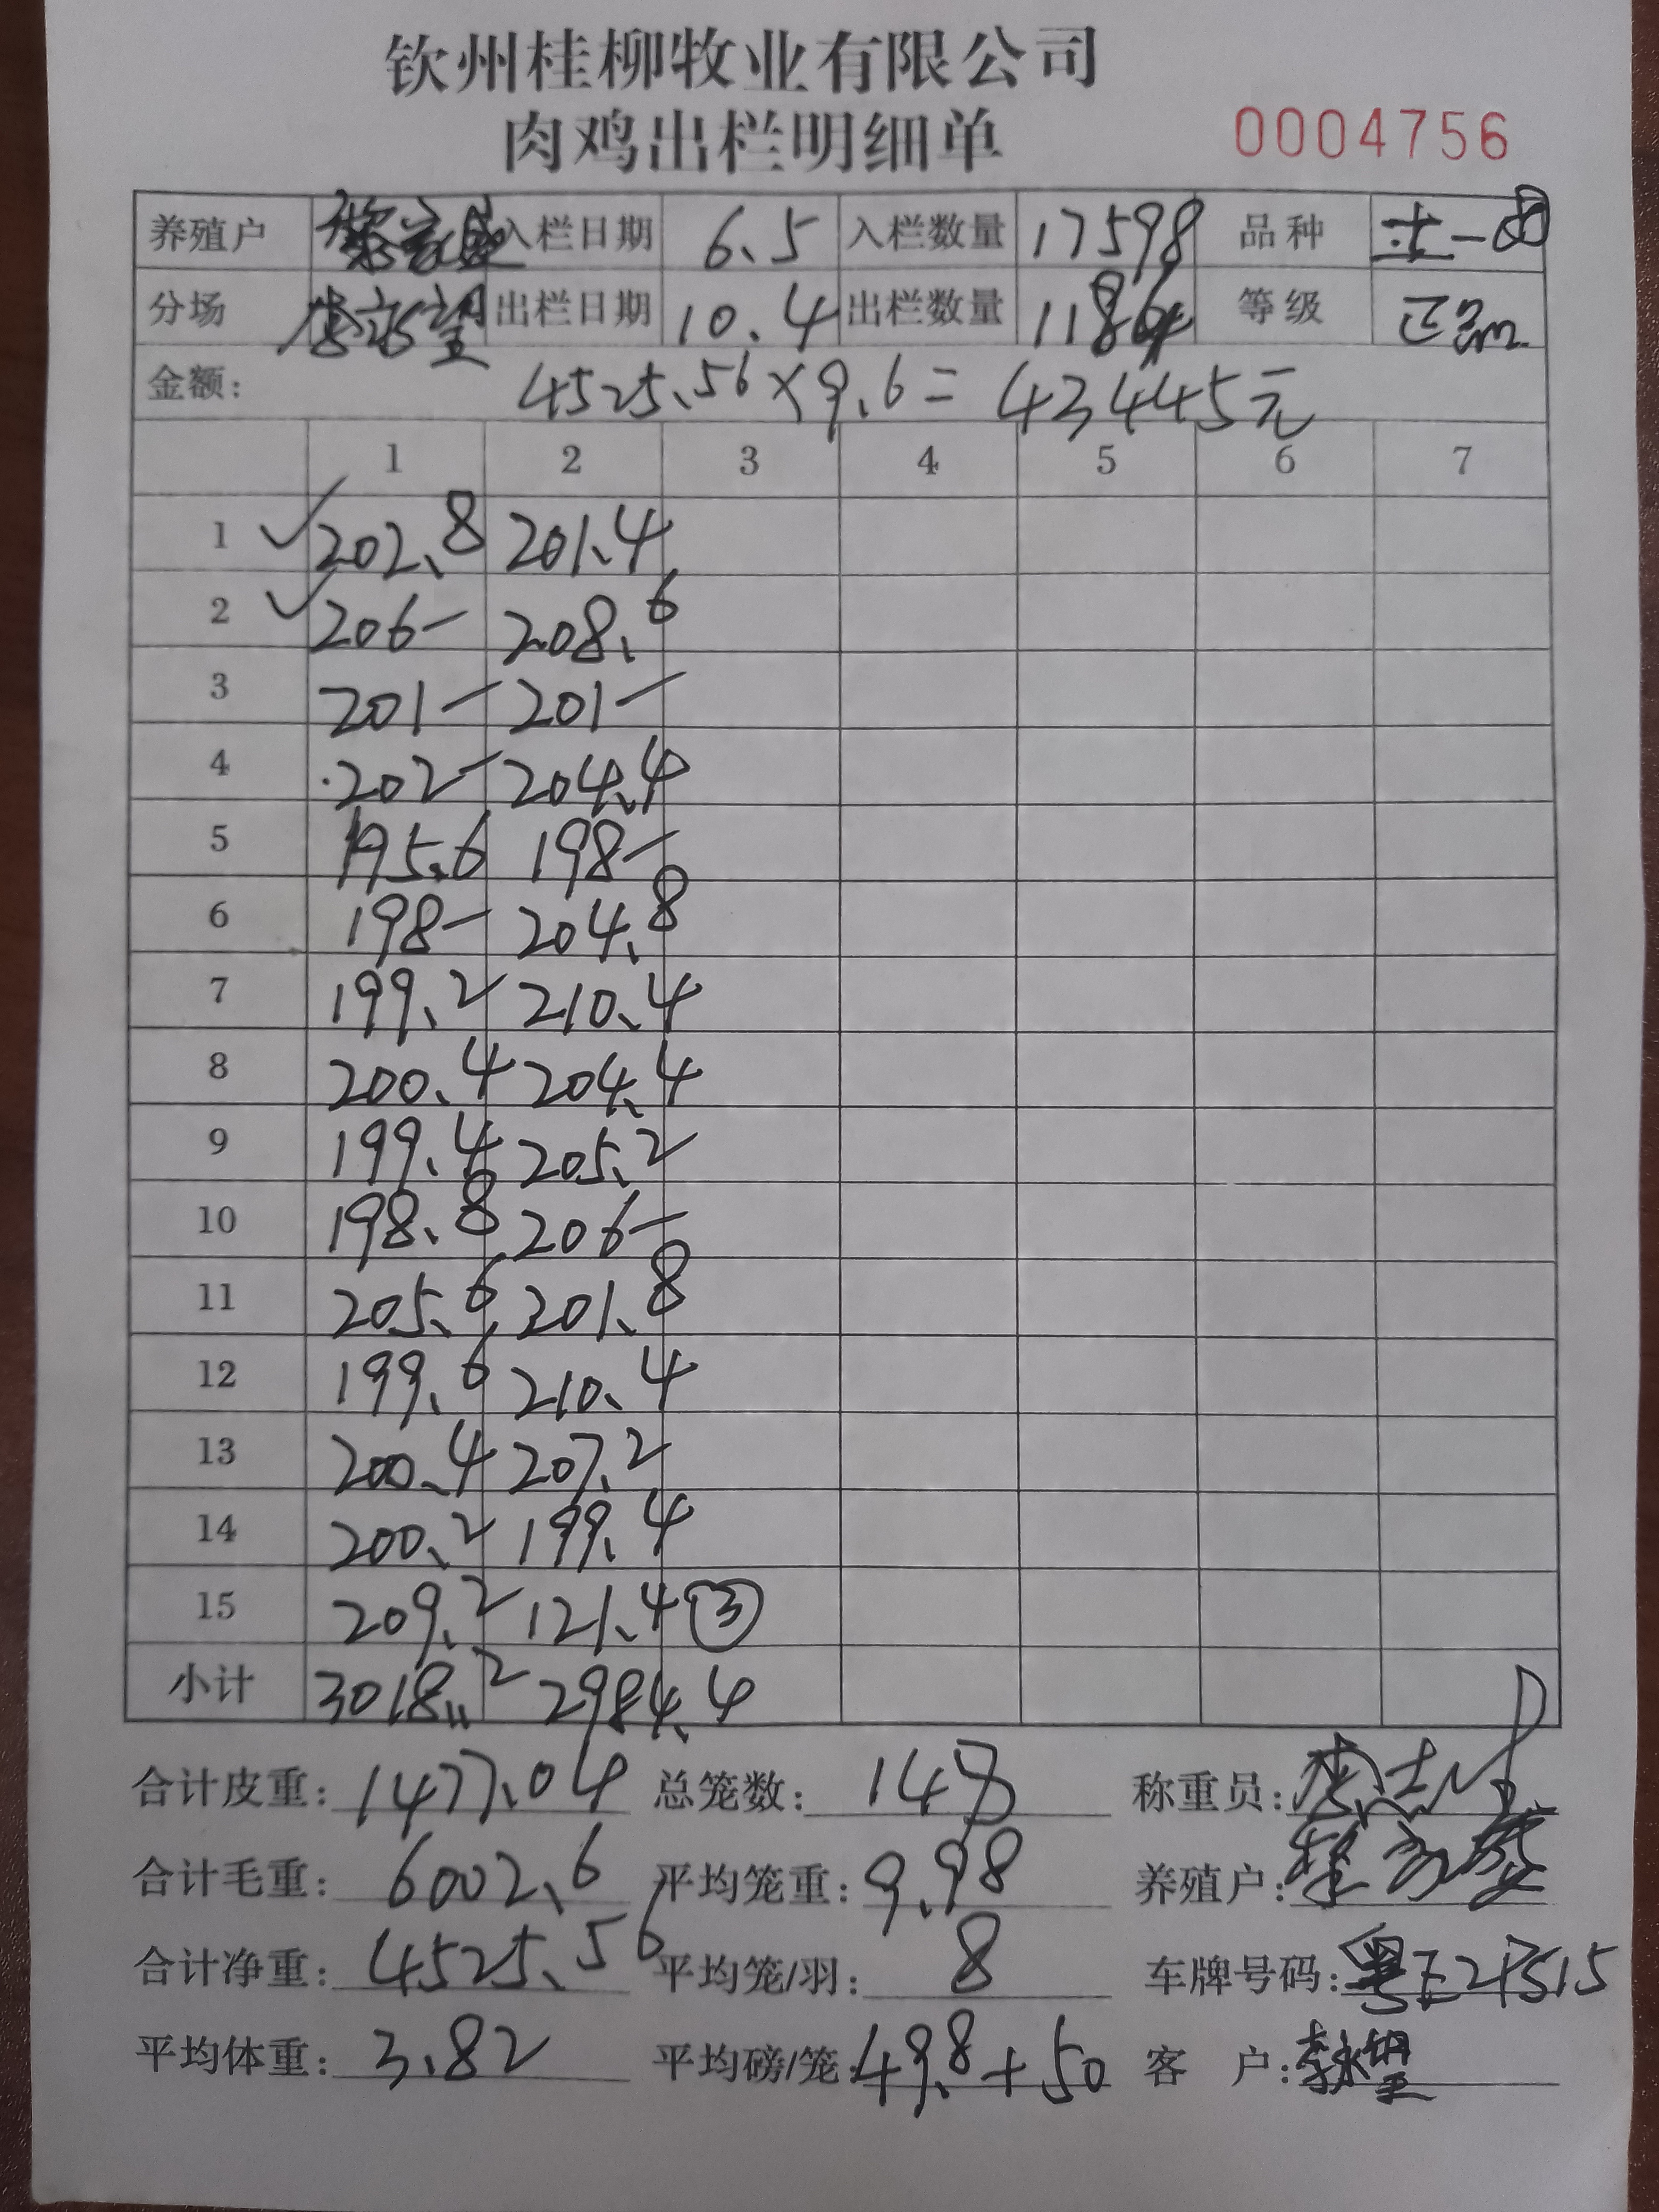 钦州桂柳牧业有限公司
肉鸡出栏明细单 0004756
养殖户 入栏日期 6.5 入栏数量 17598 品种 土一
分场 出栏日期 10.4 出栏数量 1184 等级 正品
金额: 4525.56×9.6=43445元
1 2 3 4 5 6 7
1 202.8 201.4
2 206- 208.6
3 201- 201-
4 202- 204.4
5 195.6 198-
6 198- 204.8
7 199.2 210.4
8 200.4 204.4
9 199.4 205.2
10 198.8 206-
11 205.6 201.8
12 199.6 210.4
13 200.4 207.2
14 200.2 199.4
15 209.2 121.4 ③
小计 3018.2 2984.4
合计皮重: 1477.04 总笼数: 148 称重员:
合计毛重: 6002.6 平均笼重: 9.98 养殖户:
合计净重: 4525.56 平均笼/羽: 8 车牌号码:
平均体重: 3.82 平均磅/笼: 49.8+50 客 户: